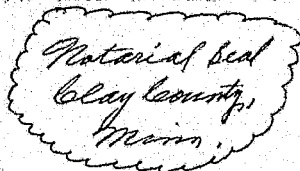 Notarial Seal
Clay County,
Minn.